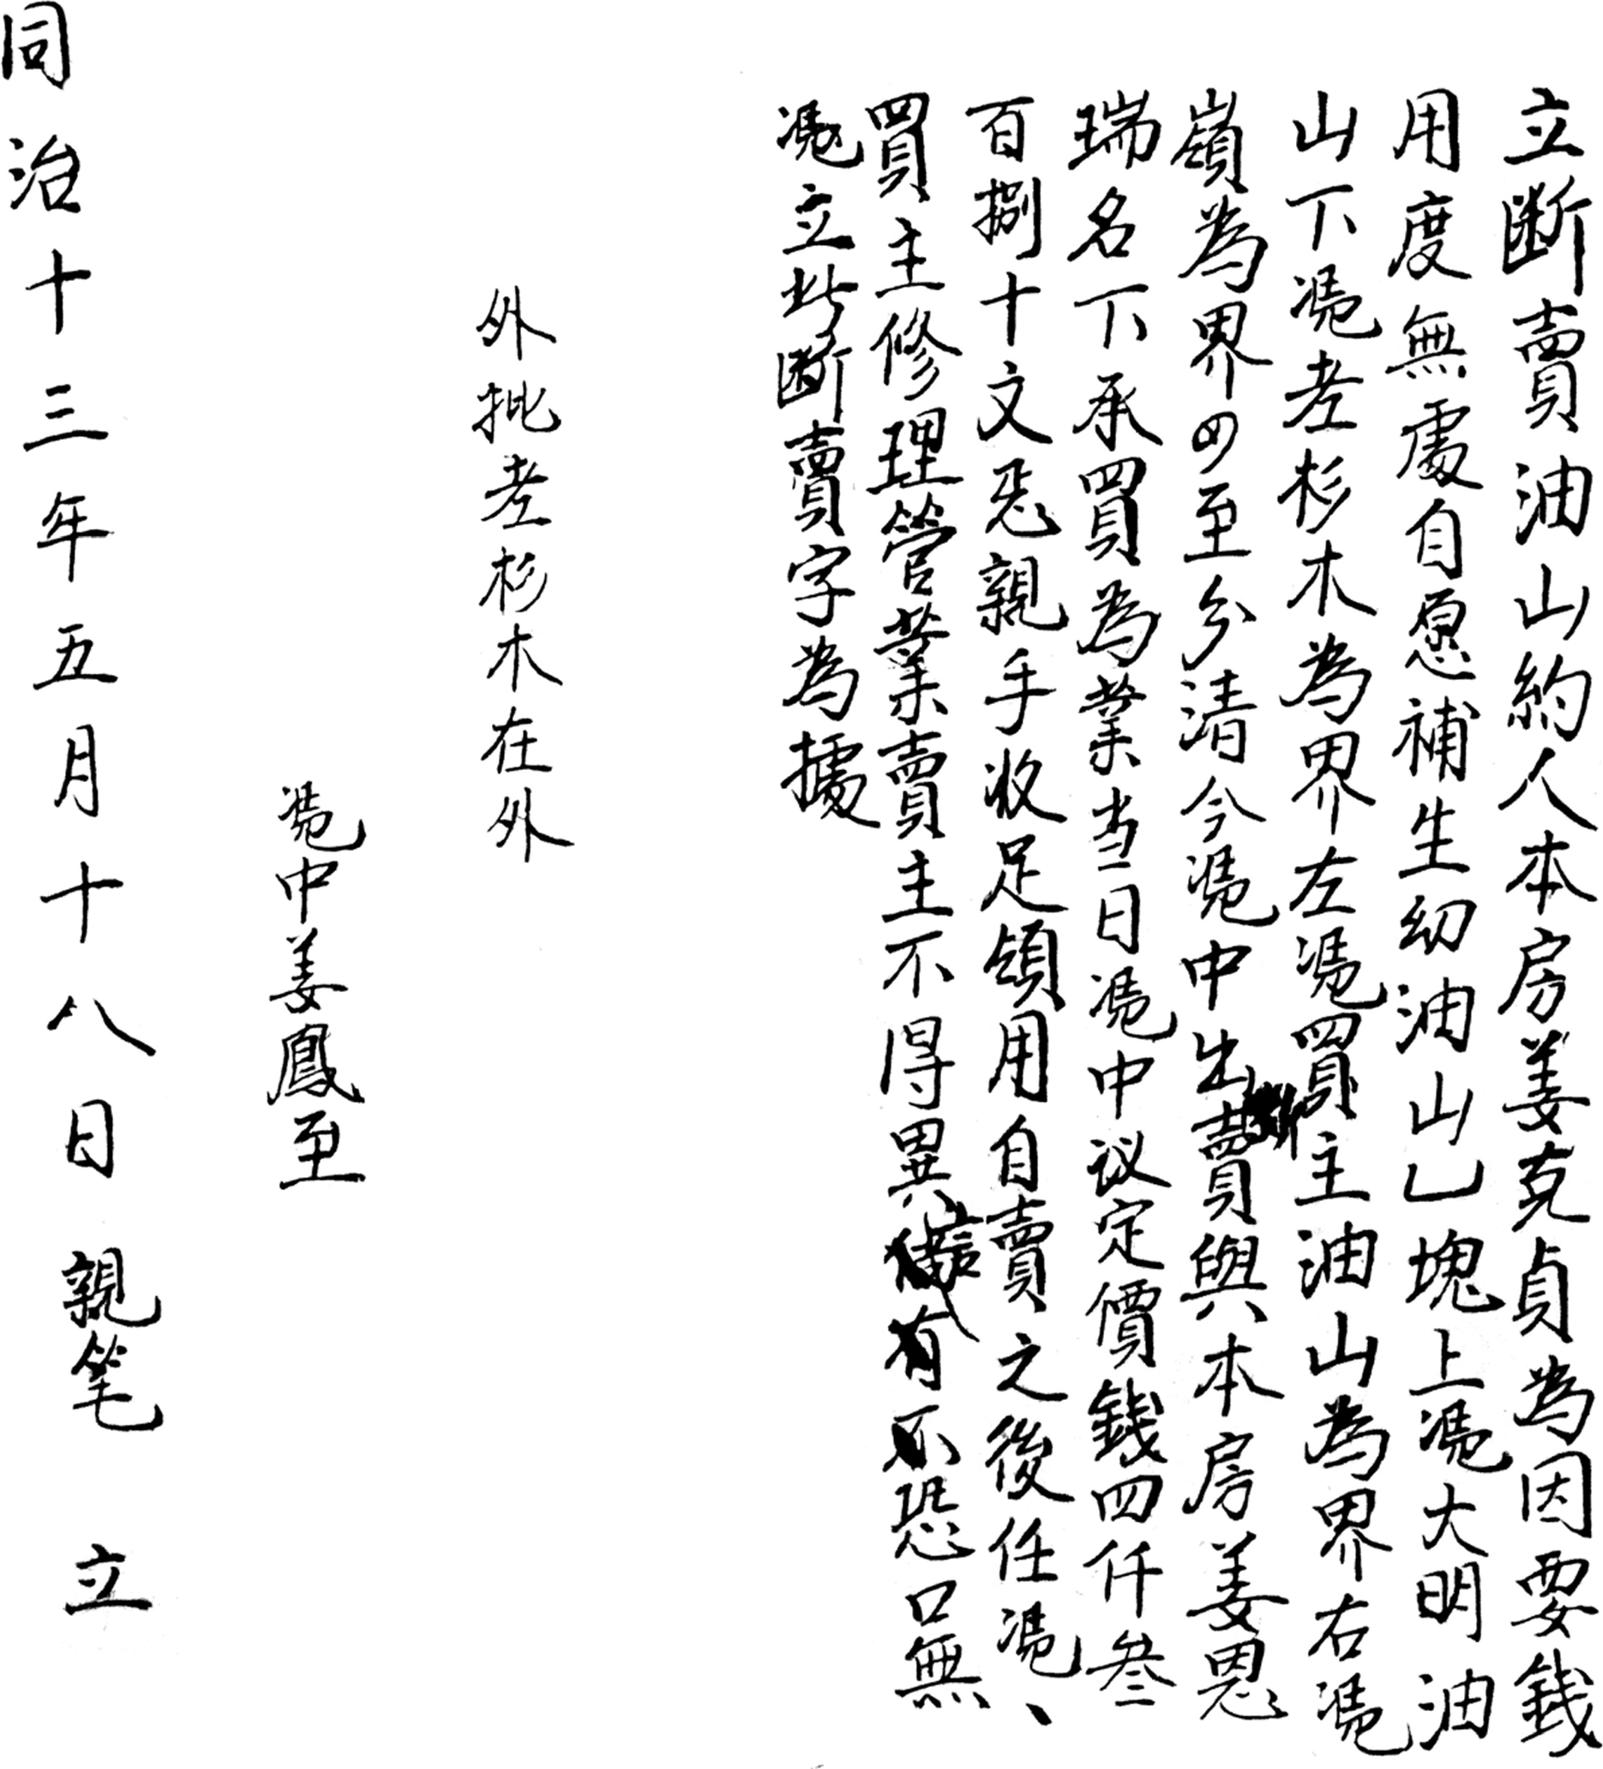 立断賣油山約人本房姜克貞為因要錢
用度無處自愿補生幼油山乚塊上凴大明油
山下凴老杉木為界左凴買主油山為界右凴
嶺為界四至分清今凴中出賣與本房姜恩
瑞名下承買為業当日凴中议定價錢四仟叁
百捌十文悉親手收足領用自賣之後任凴、
買主修理管業賣主不得異言有不恐口無
凴立此断賣字為據
外批老杉木在外
凴中姜鳳至
同治十三年五月十八日親笔 立